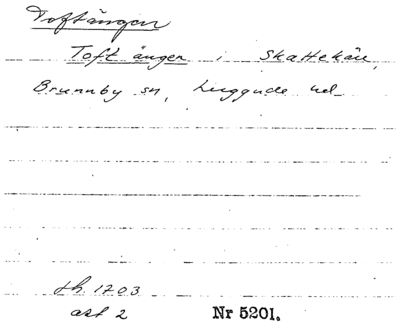 Toftängen
Toft ängen i Skattekärr,
Brunnby sn, Luggude hd
jh. 1703
akt 2 Nr 5201.